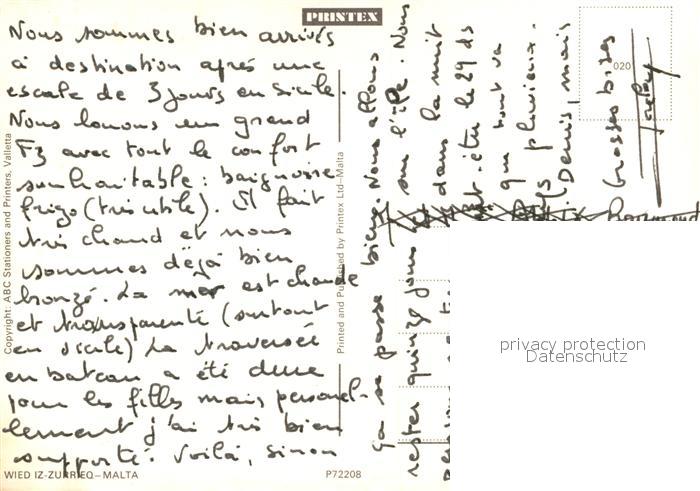 PRINTEX
Nous sommes bien arrivés
à destination après une
escale de 3 jours en Sicile.
Nous louons un grand
F3 avec tout le confort
souhaitable : baignoire
frigo (très utile). Il fait
très chaud et nous
sommes déjà bien
bronzé. La mer est chaude
et transparente (surtout
en Sicile) La traversée
en bateau a été dure
pour les filles mais personel-
lement j'ai très bien
supporté. Voilà, sinon
ça se passe bien. Nous allons
rester quinze jours sur l'île. Nous
dans la nuit
être le 29 ds
que tout va
pluvieux.
Denis, mais
Grosses bises
020
Copyright: ABC Stationers and Printers, Valletta
Printed and Published by Printex Ltd–Malta
WIED IZ-ZURRIEQ – MALTA
P72208
privacy protection
Datenschutz